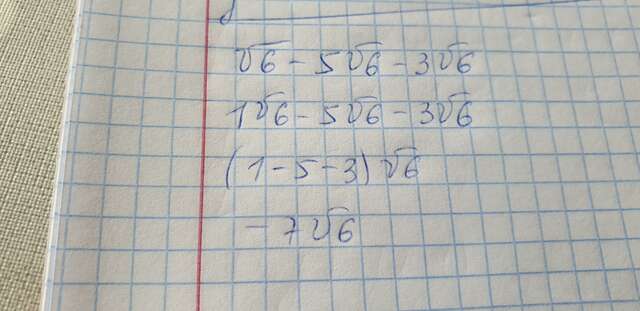 √6 - 5√6 - 3√6
1√6 - 5√6 - 3√6
(1 - 5 - 3) √6
- 7√6